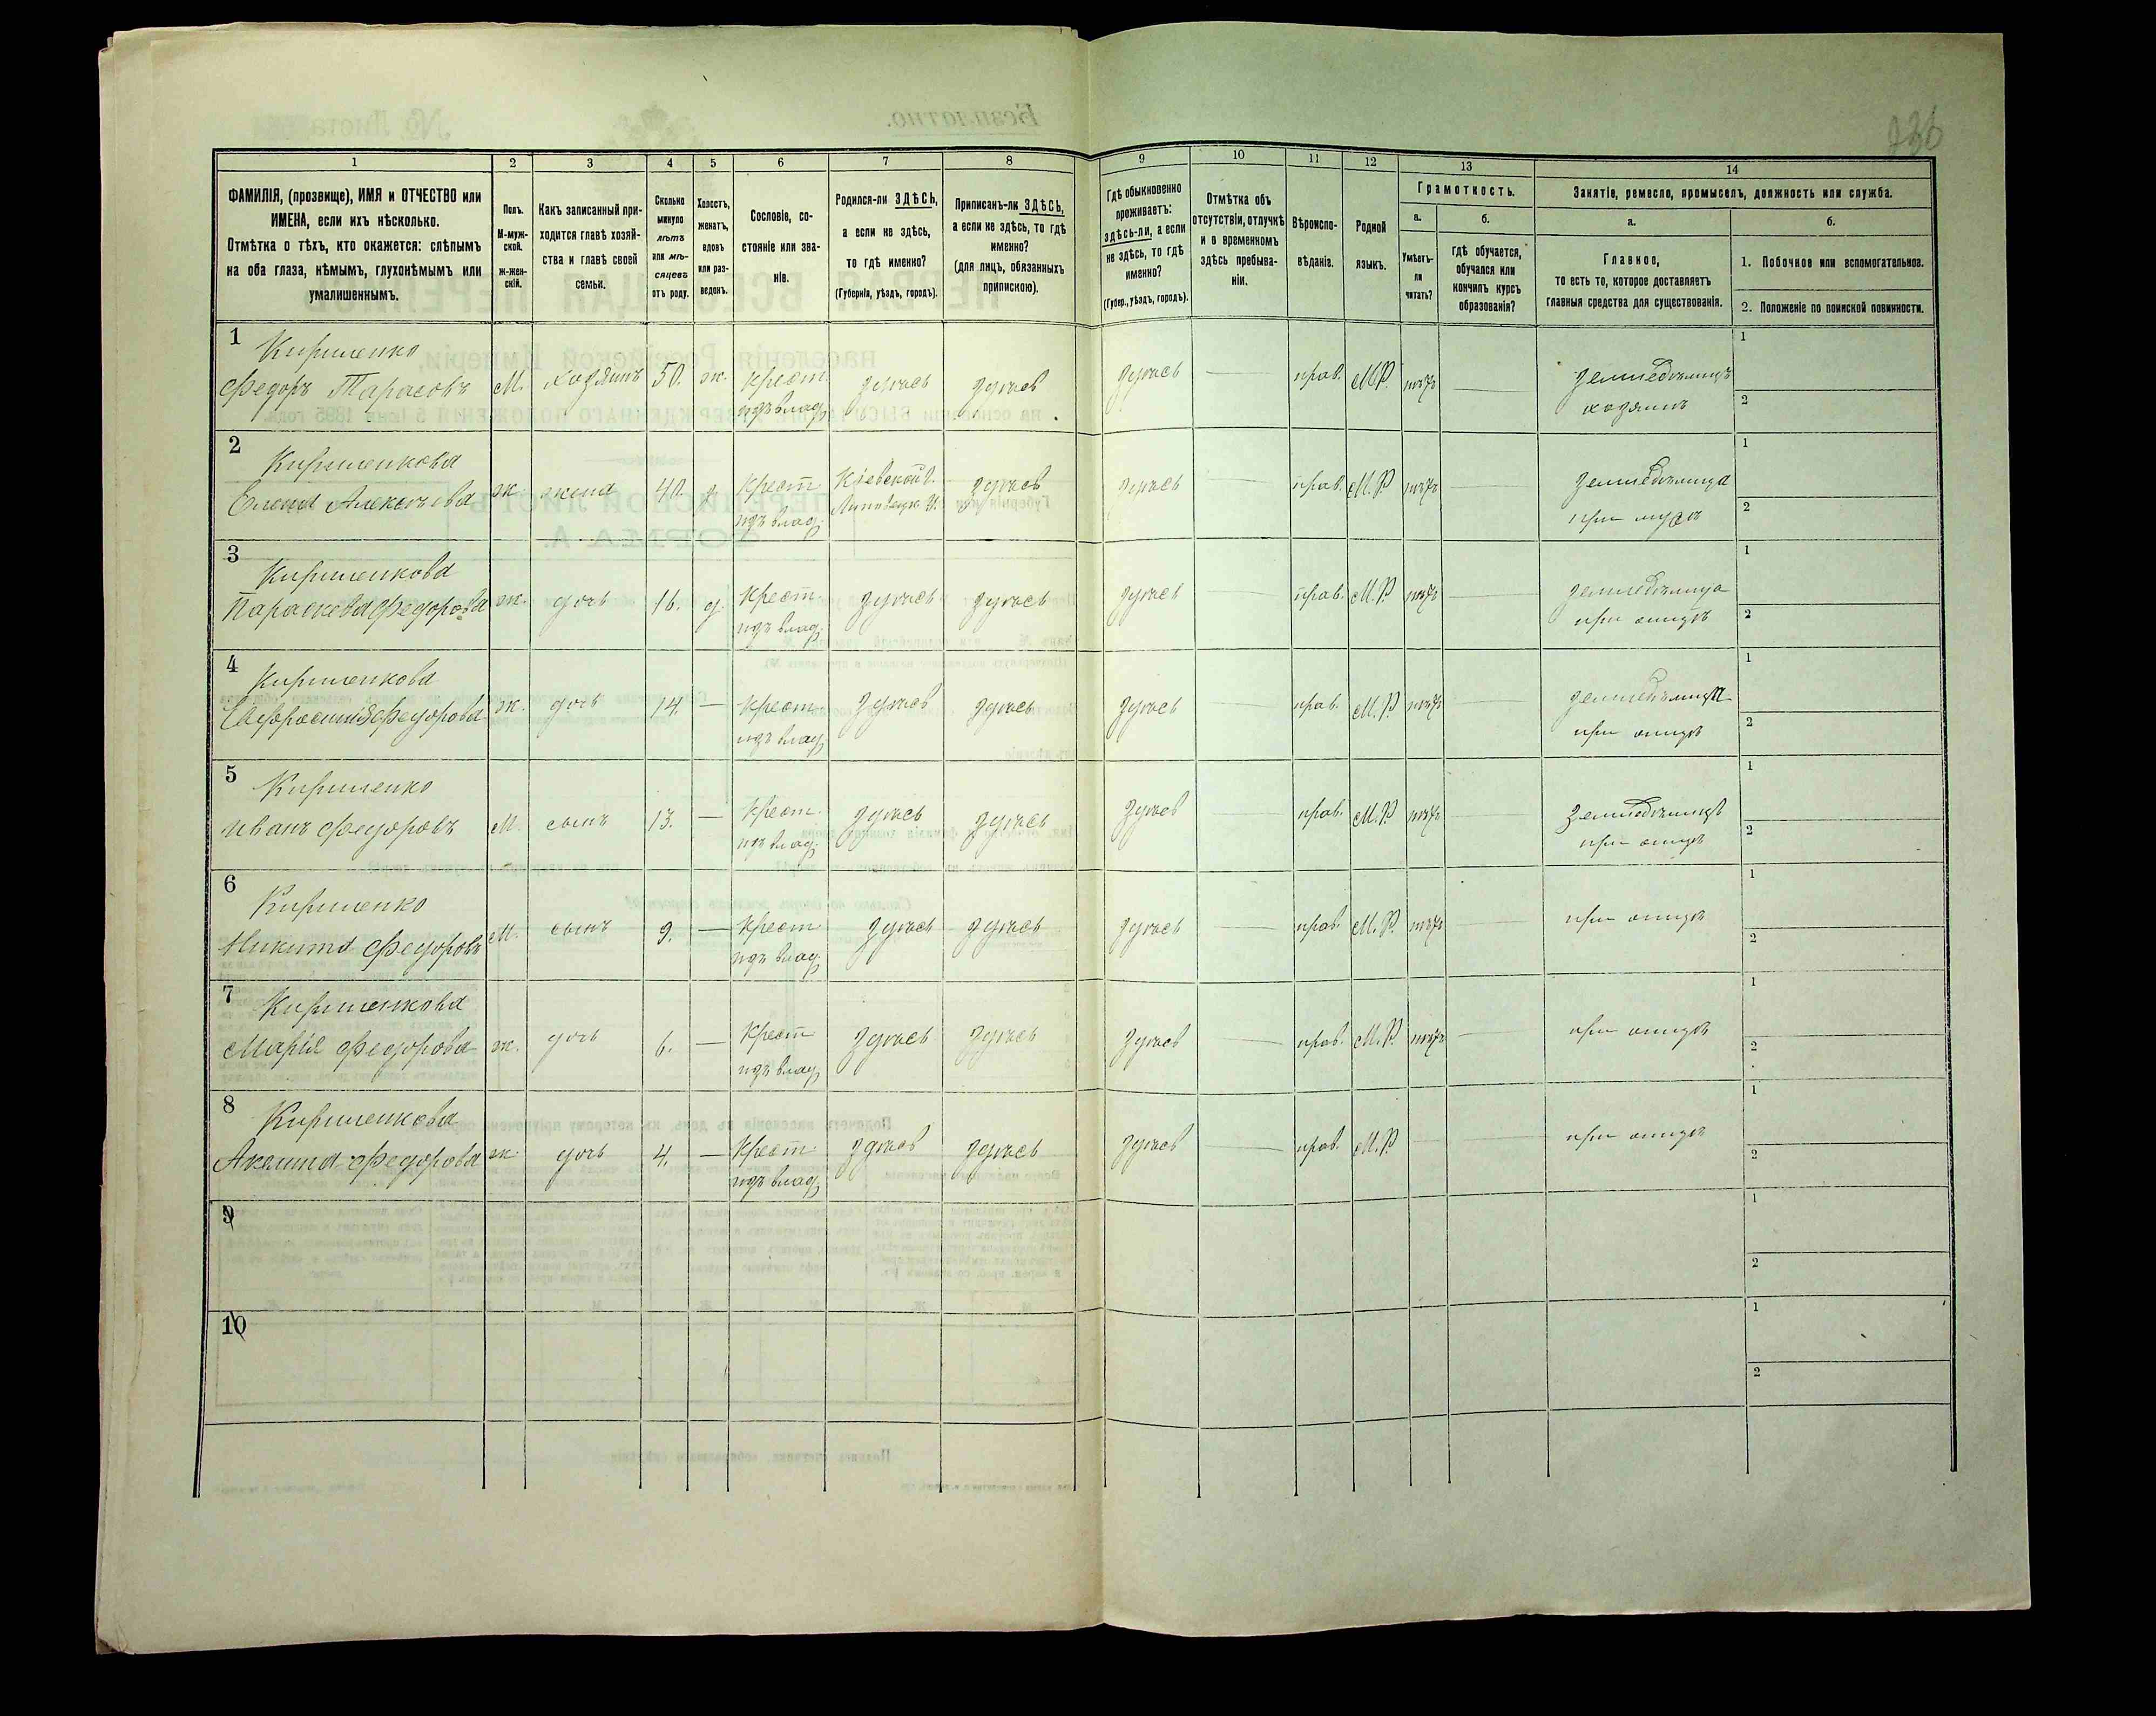 136
1 2 3 4 5 6 7 8 9 10 11 12 13 14
ФАМИЛІЯ, (прозвище), ИМЯ и ОТЧЕСТВО или
ИМЕНА, если ихъ нѣсколько.
Отмѣтка о тѣхъ, кто окажется: слѣпымъ
на оба глаза, нѣмымъ, глухонѣмымъ или
умалишеннымъ.
Полъ.
М-муж-
ской.
Ж-жен-
скій.
Какъ записанный при-
ходится главѣ хозяй-
ства и главѣ своей
семьи.
Сколько
минуло
лѣтъ
или мѣ-
сяцевъ
отъ роду.
Холостъ,
женатъ,
вдовъ
или раз-
веденъ.
Сословіе, со-
стояніе или зва-
ніе.
Родился-ли ЗДѢСЬ,
а если не здѣсь,
то гдѣ именно?
(Губернія, уѣздъ, городъ).
Приписанъ-ли ЗДѢСЬ,
а если не здѣсь, то гдѣ
именно?
(для лицъ, обязанныхъ
припискою).
Гдѣ обыкновенно
проживаетъ:
здѣсь-ли, а если
не здѣсь, то гдѣ
именно?
(Губер., уѣздъ, городъ).
Отмѣтка объ
отсутствіи, отлучкѣ
и о временномъ
здѣсь пребыва-
ніи.
Вѣроиспо-
вѣданіе.
Родной
языкъ.
Грамотность.
а.
Умѣетъ-
ли
читать?
б.
Гдѣ обучается,
обучался или
кончилъ курсъ
образованія?
Занятіе, ремесло, промыселъ, должность или служба.
а.
Главное,
то есть то, которое доставляетъ
главныя средства для существованія.
б.
1. Побочное или вспомогательное.
2. Положеніе по воинской повинности.
1 Кириленко 1
Федоръ Тарасовъ М. хозяинъ 50. ж. крест. здѣсь здѣсь здѣсь — прав. М.Р. нѣтъ — земледѣлецъ
изъ влад. хозяинъ 2
2 Кириленкова 1
Елена Алексѣева ж. жена 40. з. крест Кіевской г. здѣсь здѣсь — прав. М.Р. нѣтъ — земледѣлица
изъ влад. Липовецк. у. при мужѣ 2
3 Кириленкова 1
Параскева Федорова ж. дочь 16. д. крест. здѣсь здѣсь здѣсь — прав. М.Р. нѣтъ — земледѣлица
изъ влад. при отцѣ 2
4 Кириленкова 1
Евфросинія Федорова ж. дочь 14. — крест. здѣсь здѣсь здѣсь — прав. М.Р. нѣтъ — земледѣлица
изъ влад. при отцѣ 2
5 Кириленко 1
Иванъ Федоровъ М. сынъ 13. — крест. здѣсь здѣсь здѣсь — прав. М.Р. нѣтъ — земледѣлецъ
изъ влад. при отцѣ 2
6 Кириленко 1
Никита Федоровъ М. сынъ 9. — крест. здѣсь здѣсь здѣсь — прав. М.Р. нѣтъ — при отцѣ
изъ влад. 2
7 Кириленкова 1
Марія Федорова ж. дочь 6. — крест здѣсь здѣсь здѣсь — прав. М.Р. нѣтъ — при отцѣ
изъ влад. 2
8 Кириленкова 1
Акилина Федорова ж. дочь 4. — крест здѣсь здѣсь здѣсь — прав. М.Р. — — при отцѣ
изъ влад. 2
9 1
2
10 1
2